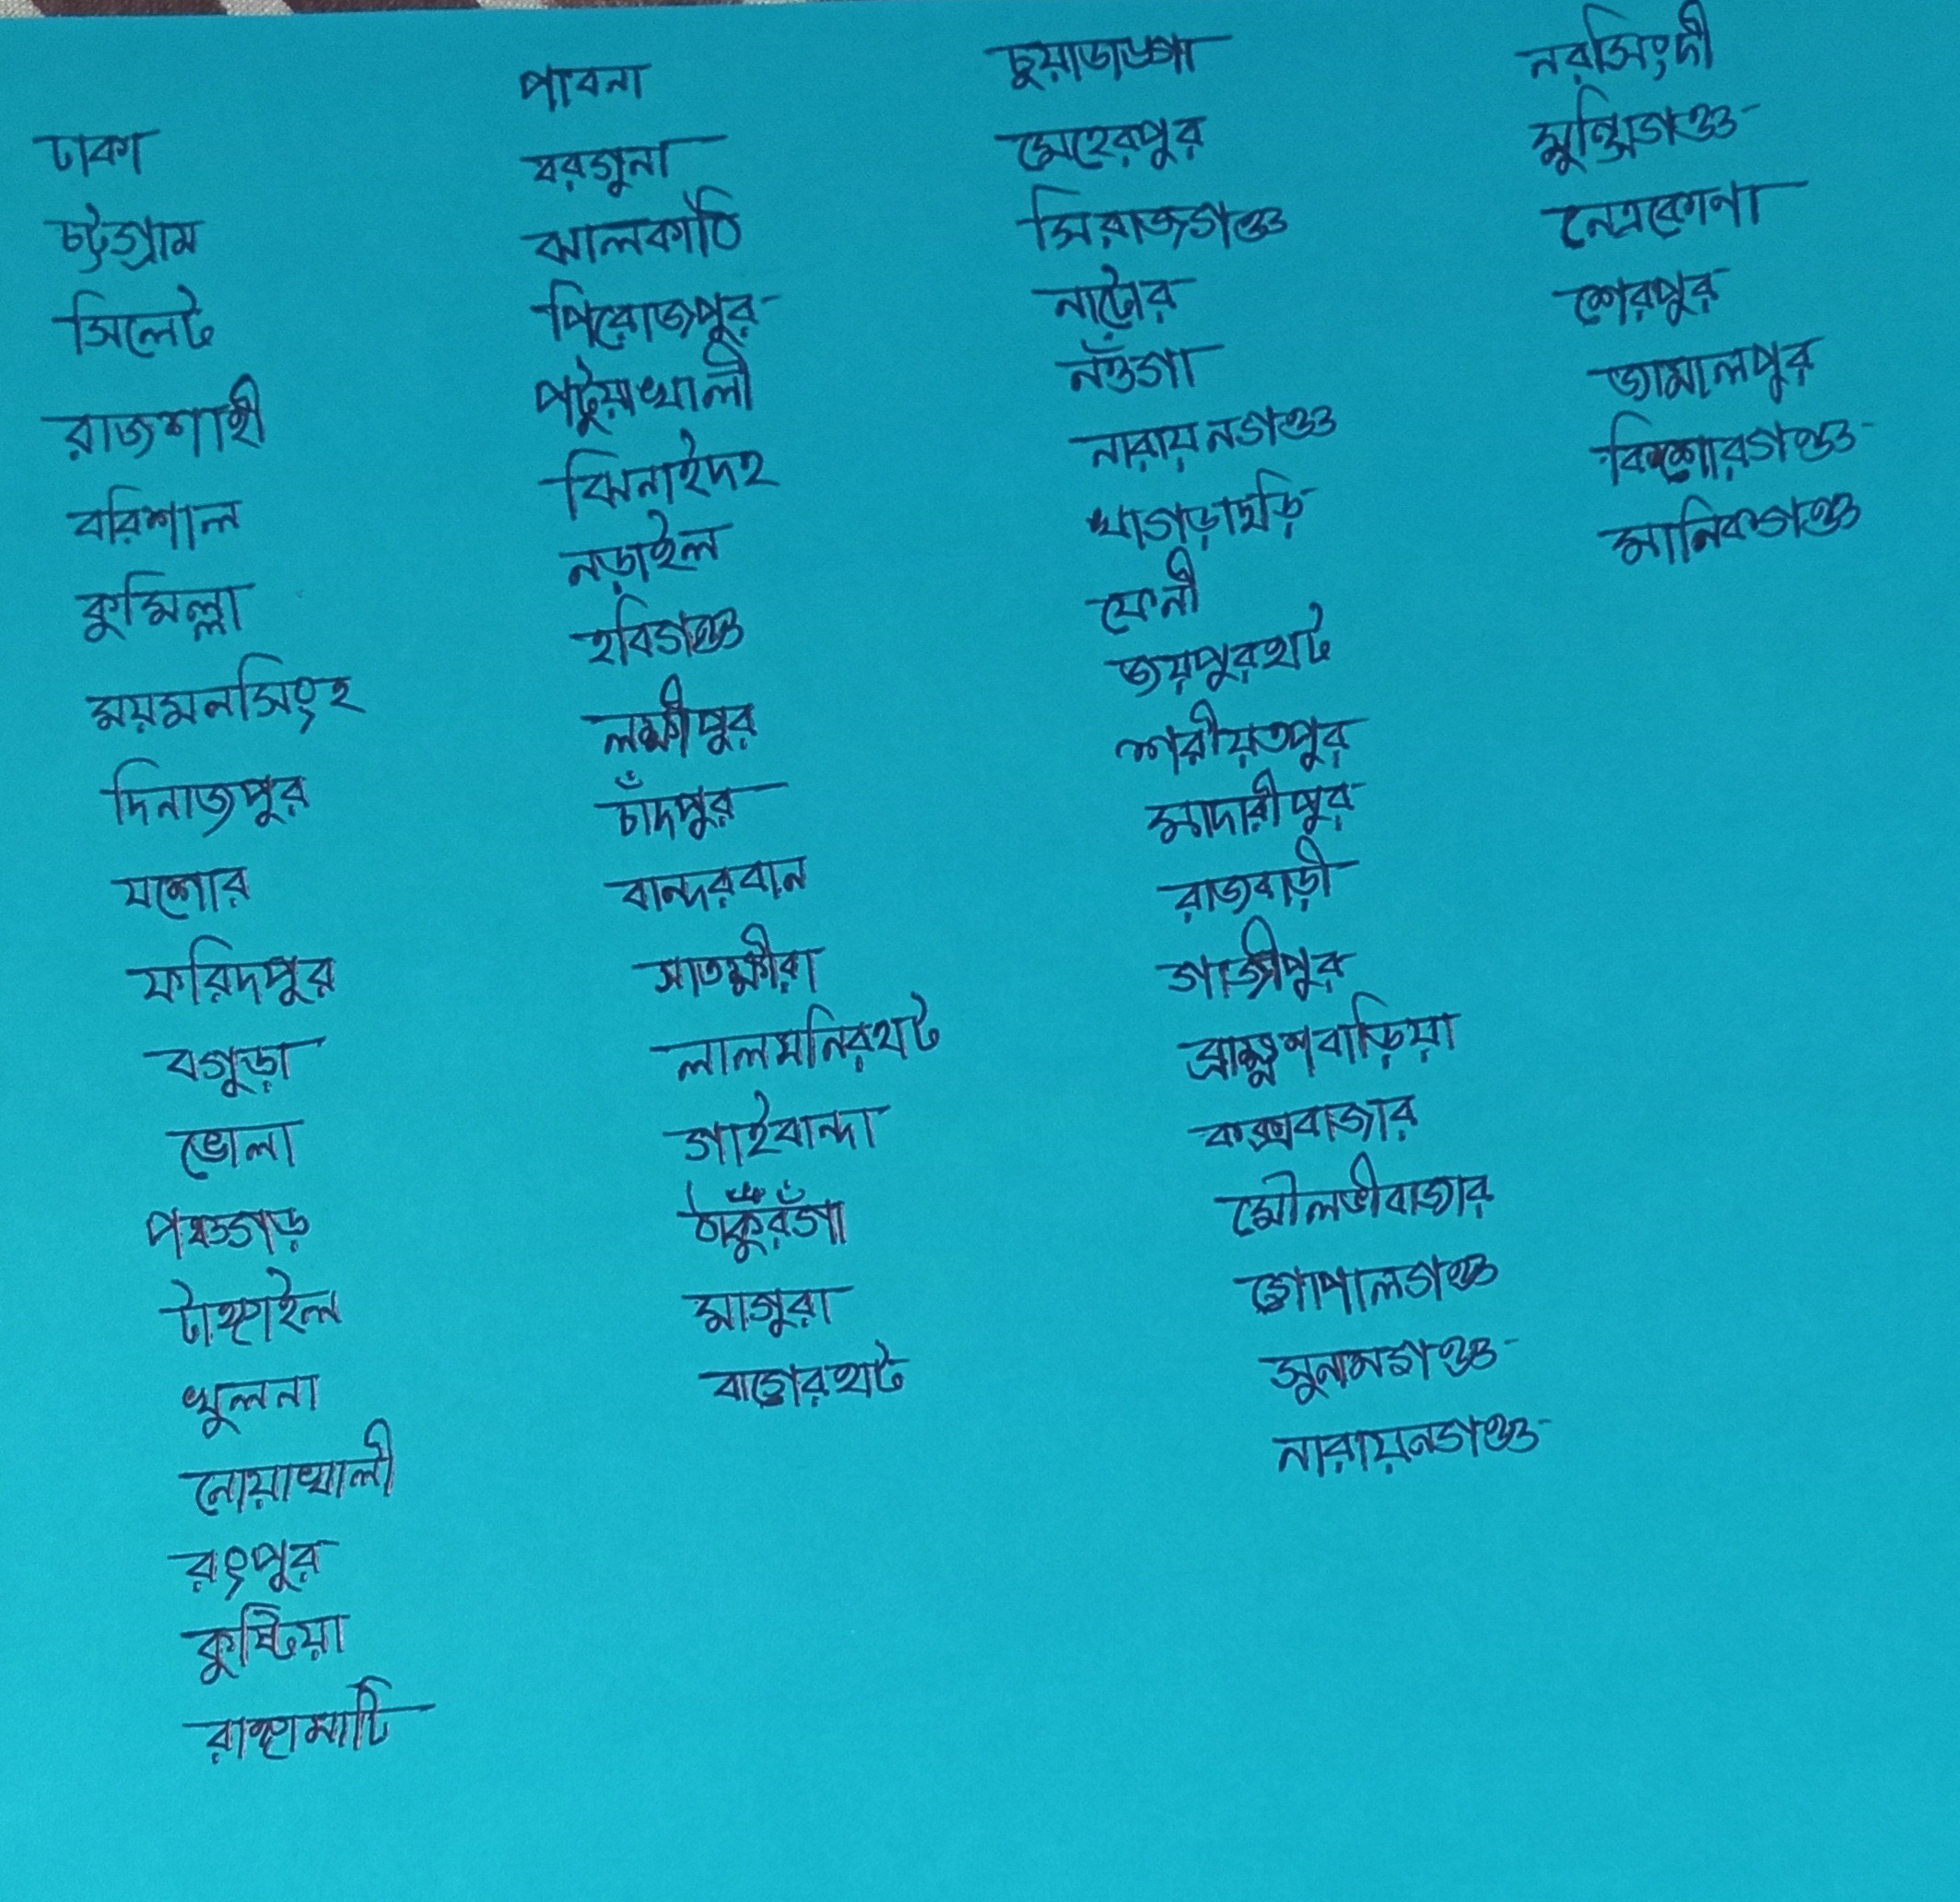 ঢাকা
চট্টগ্রাম
সিলেট
রাজশাহী
বরিশাল
কুমিল্লা
ময়মনসিংহ
দিনাজপুর
যশোর
ফরিদপুর
বগুড়া
ভোলা
পঞ্চগড়
টাঙ্গাইল
খুলনা
নোয়াখালী
রংপুর
কুষ্টিয়া
রাঙ্গামাটি
পাবনা
বরগুনা
ঝালকাঠি
পিরোজপুর
পটুয়াখালী
ঝিনাইদহ
নড়াইল
হবিগঞ্জ
লক্ষীপুর
চাঁদপুর
বান্দরবান
সাতক্ষীরা
লালমনিরহাট
গাইবান্দা
ঠাকুরগাঁ
মাগুরা
বাগেরহাট
চুয়াডাঙ্গা
মেহেরপুর
সিরাজগঞ্জ
নাটোর
নওঁগা
নারায়নগঞ্জ
খাগড়াছড়ি
ফেনী
জয়পুরহাট
শরীয়তপুর
মাদারীপুর
রাজবাড়ী
গাজীপুর
ব্রাহ্মণবাড়িয়া
কক্সবাজার
মৌলভীবাজার
গোপালগঞ্জ
সুনামগঞ্জ
নারায়নগঞ্জ
নরসিংদী
মুন্সিগঞ্জ
নেত্রকোনা
শেরপুর
জামালপুর
কিশোরগঞ্জ
মানিকগঞ্জ